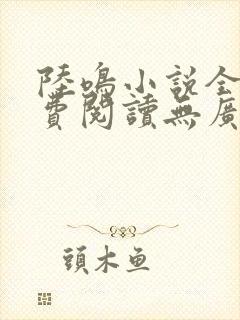 陸鳴小說全
費閱讀無廣
頭木魚